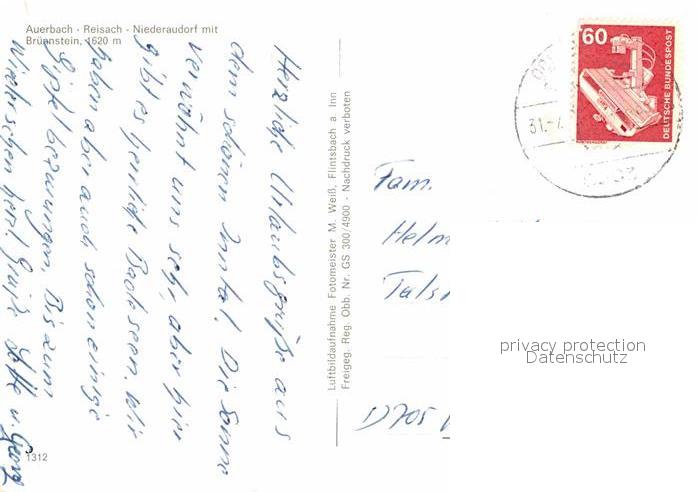 Auerbach - Reisach - Niederaudorf mit
Brünnstein, 1620 m
Herzliche Urlaubsgrüße aus
dem schönen Inntal. Die Sonne
verwöhnt uns sehr, aber hier
gibt es herrliche Badeseen. Wir
haben aber auch schon einige
Gipfel bezwungen. Bis zum
Wiedersehen herzl. Grüße
1312
Luftbildaufnahme Fotomeister M. Weiß, Flintsbach a. Inn
Freigeg. Reg. Obb. Nr. GS 300/4900 - Nachdruck verboten
60
DEUTSCHE BUNDESPOST
31.-7
Fam.
Helm
Tals
D 705
privacy protection
Datenschutz